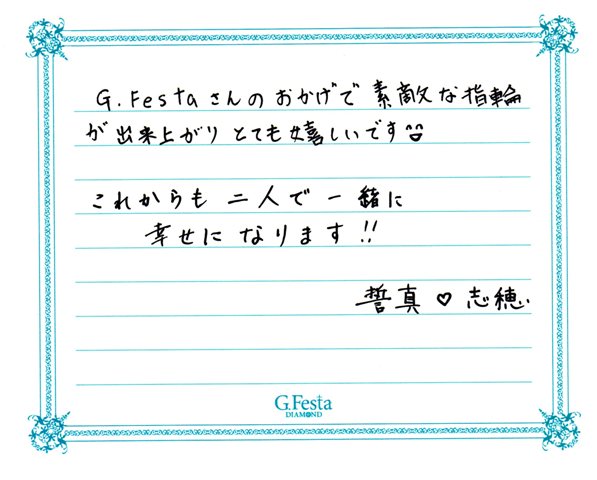 G.Festaさんのおかげで素敵な指輪
が出来上がりとても嬉しいです
これからも二人で一緒に
幸せになります!!
誓真♡志穂
G.Festa
DIAMOND